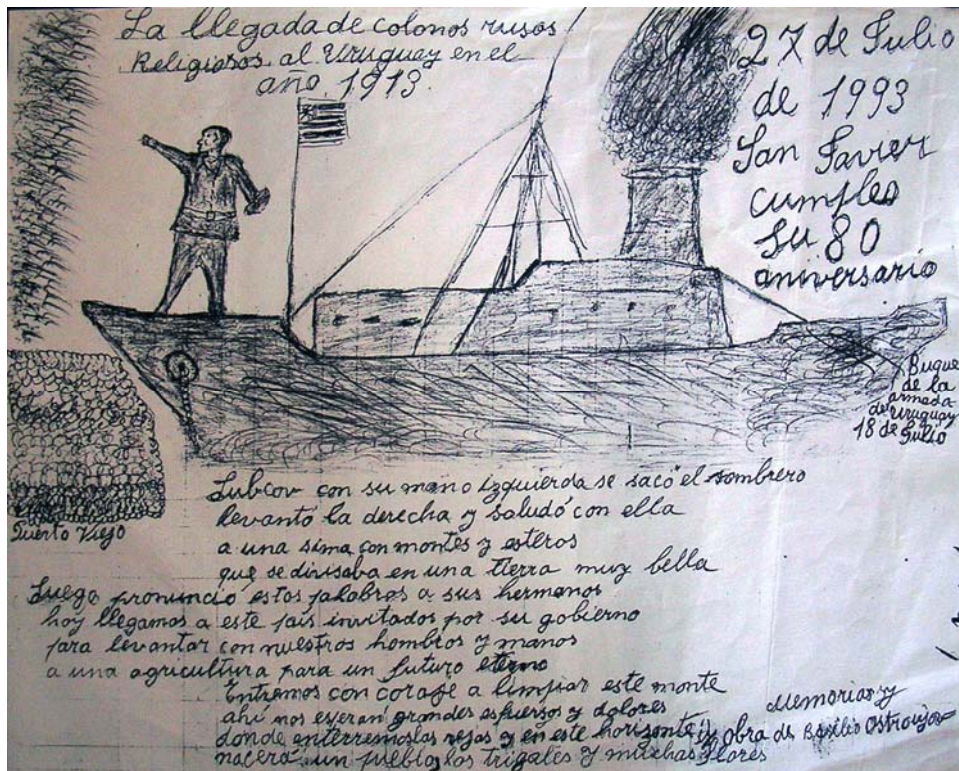 La llegada de colonos rusos
Religiosos al Uruguay en el
año 1913.
27 de Julio
de 1993
San Javier
cumples
su 80
aniversario
Buque
de la
armada
de Uruguay
18 de Julio
Puerto Viejo
Lubcov con su mano izquierda se sacó el sombrero
levantó la derecha y saludó con ella
a una sima con montes y esteros
que se divisaba en una tierra muy bella
Luego pronunció estas palabras a sus hermanos
hoy llegamos a este país invitados por su gobierno
para levantar con nuestros hombros y manos
a una agricultura para un futuro eterno
Entremos con coraje a limpiar este monte
ahí nos esperan grandes esfuerzos y dolores
donde enterremos las rejas y en este horizonte
nacerá un pueblo, los trigales y muchas flores
Memorias y
obra de Basilio